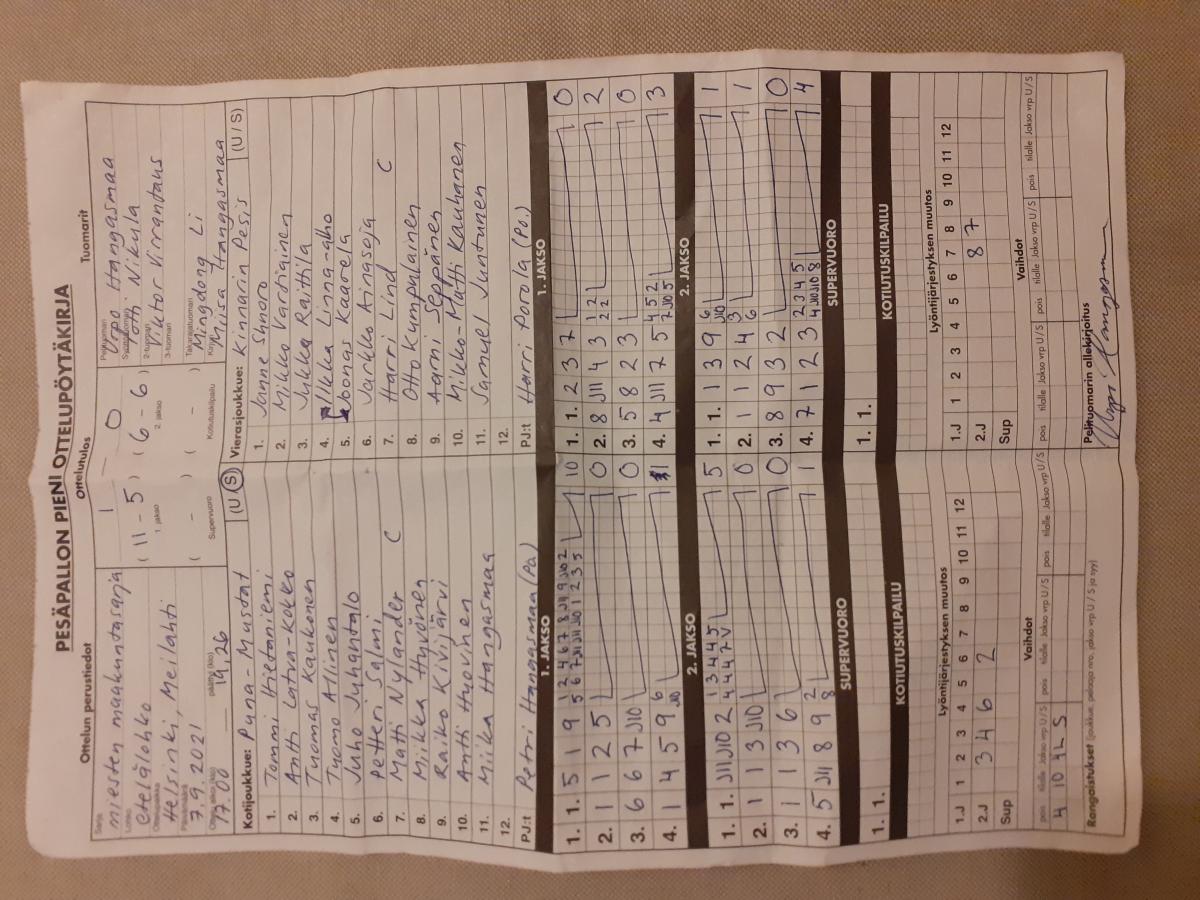 PESÄPALLON PIENI OTTELUPÖYTÄKIRJA
Ottelun perustiedot
Ottelutulos
Tuomarit
Sarja
miesten maakuntasarja
Lohko
etelälohko
Ottelupaikka
Helsinki, Meilahti
Päivämäärä
7.9.2021
Ottelu alkoi (klo)
17.00
päättyi (klo)
19.26
1 – 0
( 11 – 5 ) ( 6 – 6 )
1. jakso 2. jakso
( – ) ( – )
Supervuoro Kotiutuskilpailu
Pelituomari
Urpo Hangasmaa
Syöttötuomari
Otti Nikula
2-tuomari
3-tuomari
Viktor Virrantaus
Takarajatuomari
Mingdong Li
Kirjuri
Miisa Hangasmaa
Kotijoukkue: Puna-Mustat (U/S)
1. Tommi Hietaniemi
2. Antti Latva-Kokko
3. Tuomas Kaukonen
4. Tuomo Allinen
5. Juho Juhantalo
6. Petteri Salmi
7. Matti Nylander C
8. Miikka Hyvönen
9. Raiko Kivijärvi
10. Antti Huovinen
11. Miika Hangasmaa
12.
PJ:t Petri Hangasmaa (Po)
Vierasjoukkue: Kinnarin Pesis (U/S)
1. Janne Shnoro
2. Mikko Vartiainen
3. Jukka Raittila
4. Ilkka Linna-aho
5. Joonas Kaarela
6. Jarkko Ainasoja
7. Harri Lind C
8. Otto Kumpulainen
9. Aarni Seppänen
10. Mikko-Matti Kauhanen
11. Samuel Juntunen
12.
PJ:t Harri Porola (Po.)
1. JAKSO
1. 1. 5 1 9 1 2 4 6 7 8 J11 9 J10 2 10
5 6 7 J11 J11 J10 1 2 3 5
2. 1 1 2 5 0
3. 6 6 7 J10 0
4. 1 4 5 9 6 1
J10
1. JAKSO
1. 1. 2 3 7 0
2. 8 J11 4 3 1 2 2
2 2
3. 5 8 2 3 0
4. 4 J11 7 5 4 5 2 3
7 J10 5
2. JAKSO
1. 1. J11 J10 2 1 3 4 4 5 5
4 4 4 7 V
2. 1 1 3 J10 0
3. 1 1 3 6 0
4. 5 J11 8 9 2 1
8
2. JAKSO
1. 1. 1 3 9 6 1
J10
2. 1 1 2 4 3 1
6
3. 8 9 3 2 0
4. 7 1 2 3 2 3 4 5 4
4 J10 J10 8
SUPERVUORO
1. 1.
SUPERVUORO
1. 1.
KOTIUTUSKILPAILU
KOTIUTUSKILPAILU
Lyöntijärjestyksen muutos
1.J 1 2 3 4 5 6 7 8 9 10 11 12
2.J 3 4 6 2
Sup
Lyöntijärjestyksen muutos
1.J 1 2 3 4 5 6 7 8 9 10 11 12
2.J 8 7
Sup
Vaihdot
pois tilalle Jakso vrp U/S pois tilalle Jakso vrp U/S pois tilalle Jakso vrp U/S
Vaihdot
pois tilalle Jakso vrp U/S pois tilalle Jakso vrp U/S pois tilalle Jakso vrp U/S
Rangaistukset (joukkue, pelaaja nro, jakso vrp U/S ja syy)
Pelituomarin allekirjoitus